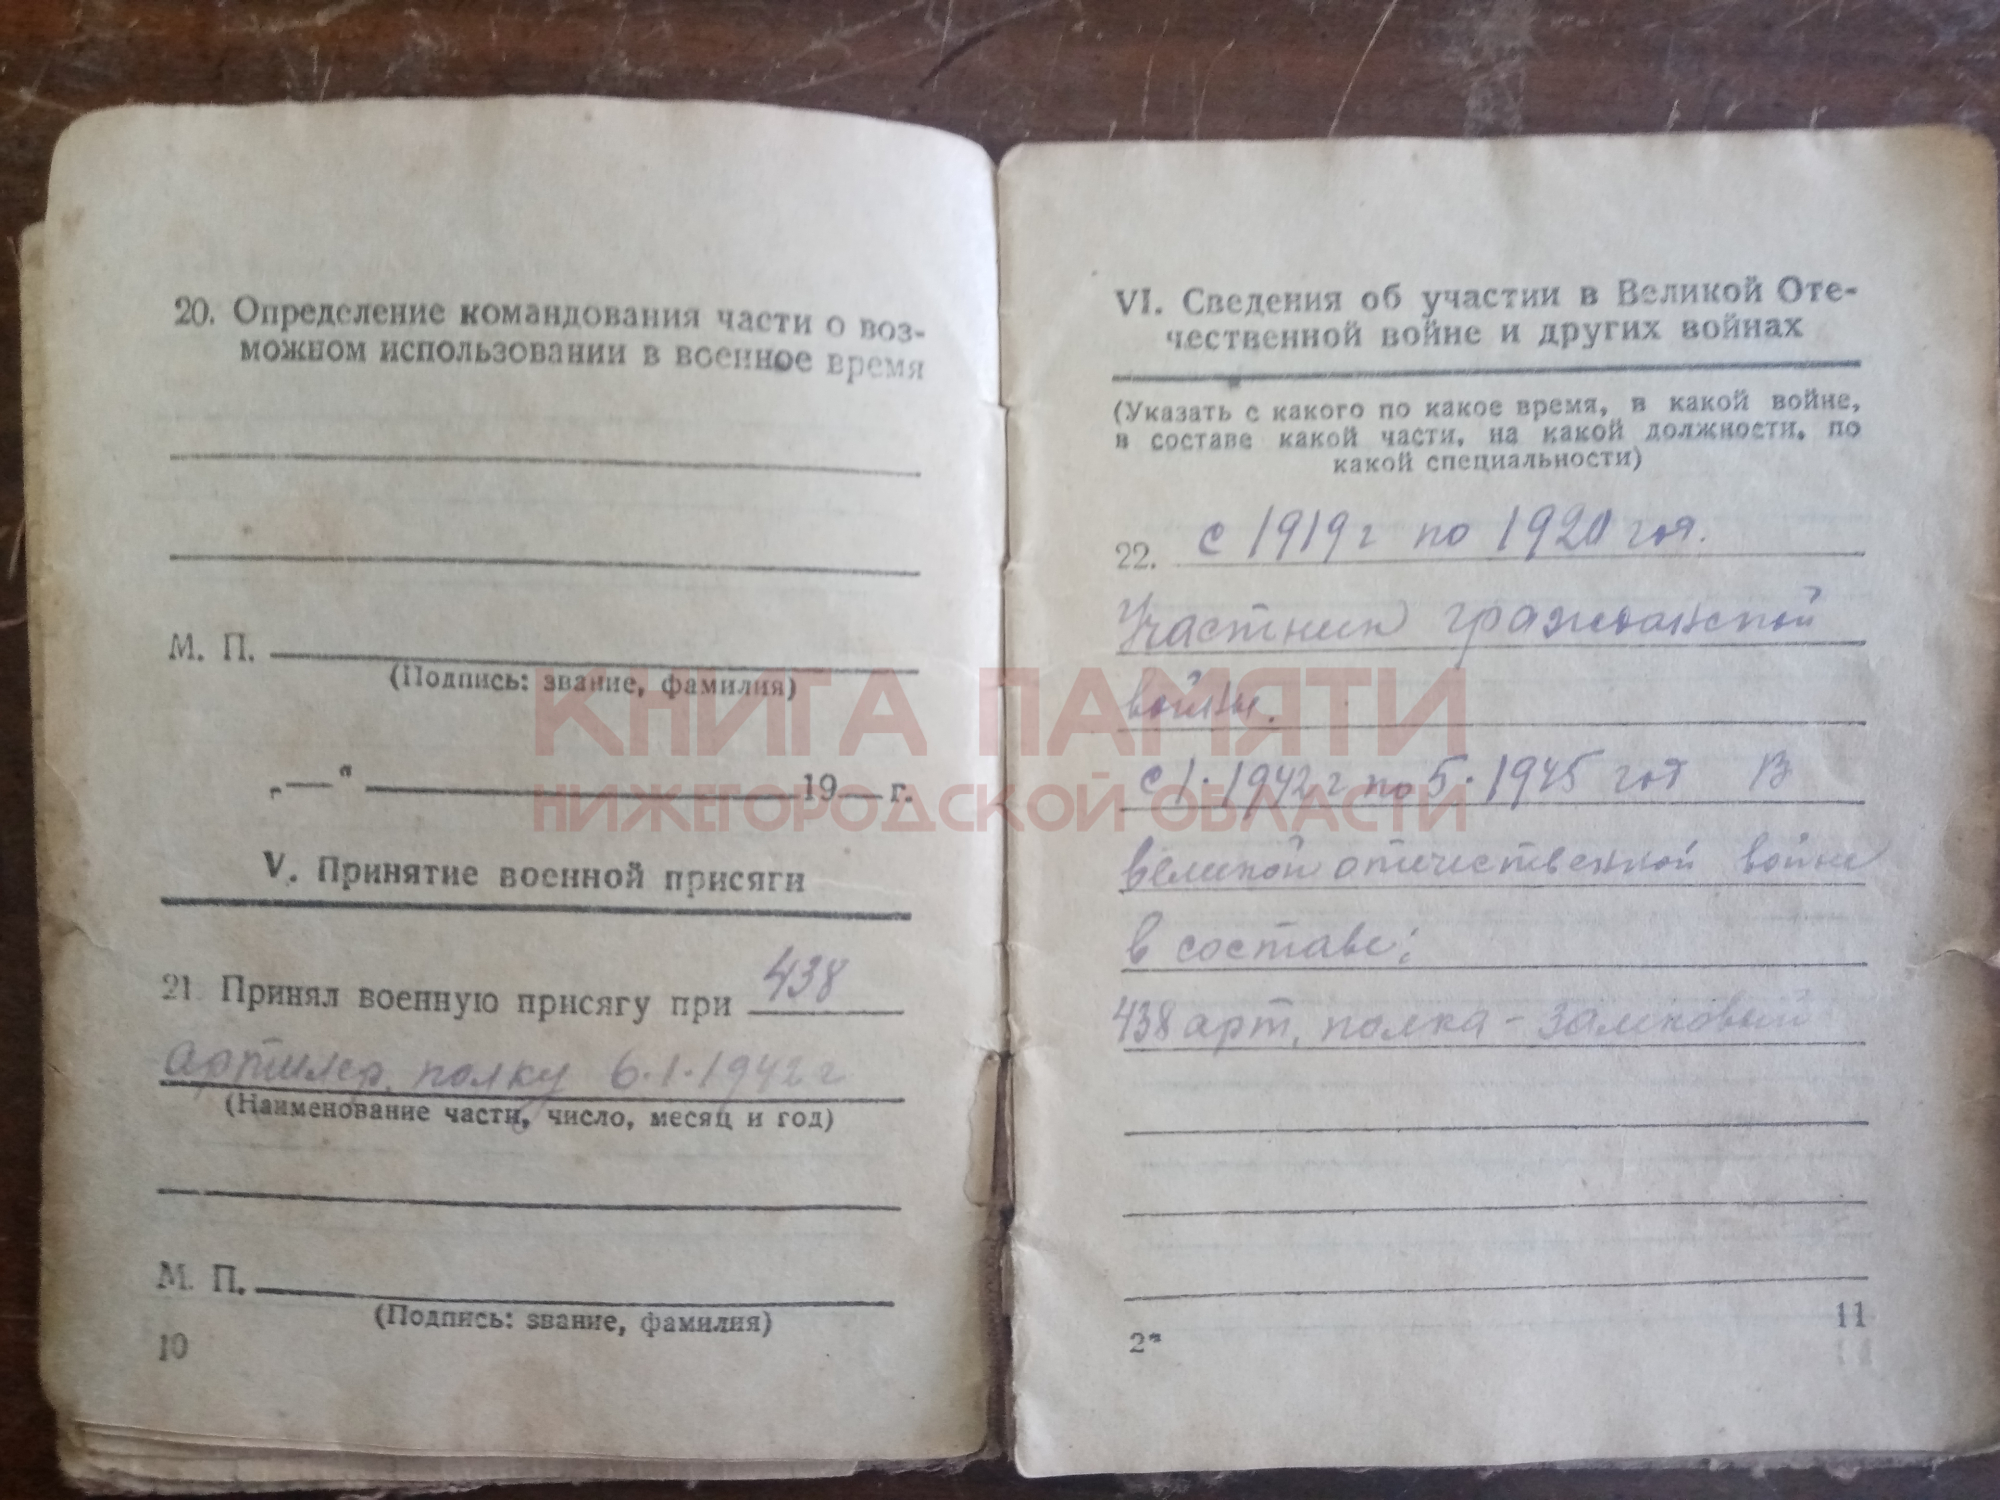 20. Определение командования части о воз-
можном использовании в военное время
М. П.
(Подпись: звание, фамилия)
„—“ 19— г.
V. Принятие военной присяги
21. Принял военную присягу при 438
артилер. полку 6.1.1942 г
(Наименование части, число, месяц и год)
М. П.
(Подпись: звание, фамилия)
10
VI. Сведения об участии в Великой Оте-
чественной войне и других войнах
(Указать с какого по какое время, в какой войне,
в составе какой части, на какой должности, по
какой специальности)
22. с 1919 г по 1920 год.
Участник гражданской
войны.
с 1.1942 г по 5.1945 год В
великой отечественной войне
в составе:
438 арт. полка - замковый
2*
11
КНИГА ПАМЯТИ
НИЖЕГОРОДСКОЙ ОБЛАСТИ